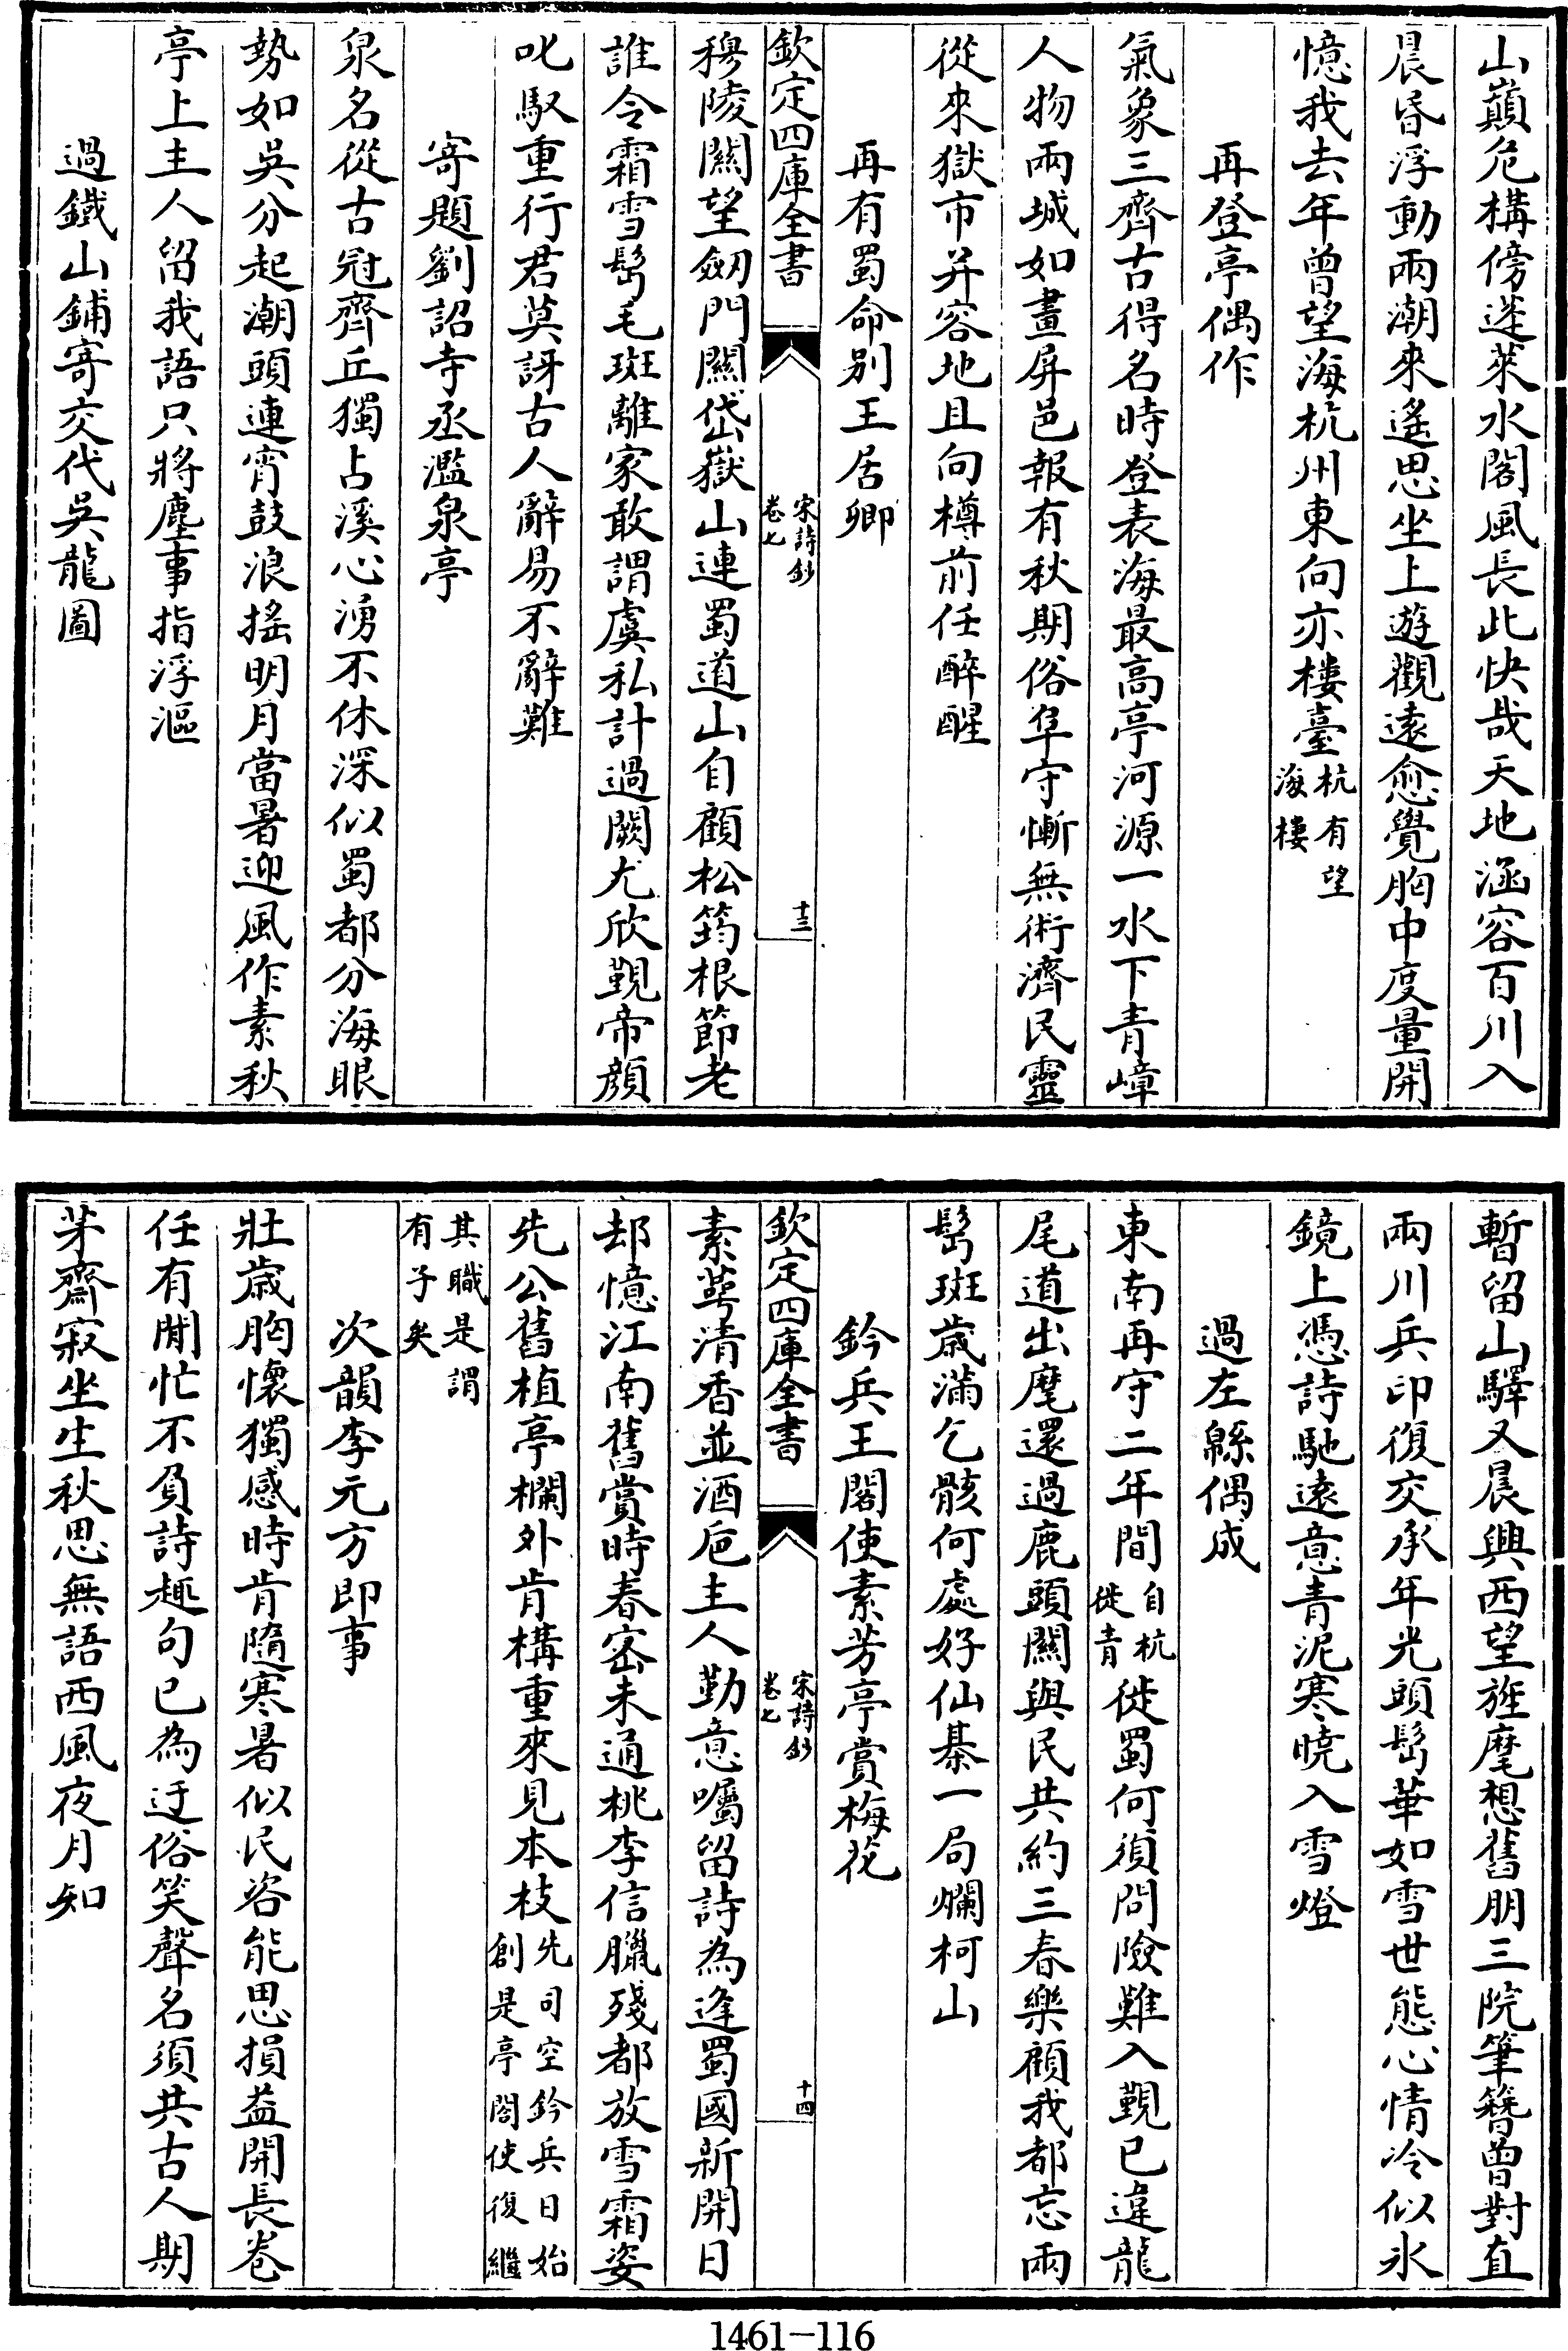 山巔危構傍蓬萊水閣風長此快哉天地涵容百川入
晨昏浮動兩潮來遙思坐上遊觀遠愈覺胸中度量開
憶我去年曾望海杭州東向亦樓臺杭有望海樓
再登亭偶作
氣象三齊古得名時登表海最高亭河源一水下青嶂
人物兩城如畫屏邑報有秋期俗阜守慚無術濟民靈
從來獄市并容地且向樽前任醉醒
再有蜀命别王居卿
欽定四庫全書
宋詩鈔
卷七
十三
穆陵關望劒門關岱嶽山連蜀道山自顧松筠根節老
誰令霜雪髩毛斑離家敢謂虞私計過闕尤欣覲帝顔
叱馭重行君莫訝古人辭易不辭難
寄題劉詔寺丞濫泉亭
泉名從古冠齊丘獨占溪心湧不休深似蜀都分海眼
勢如吳分起潮頭連宵鼓浪搖明月當暑迎風作素秋
亭上主人留我語只將塵事指浮漚
過鐵山鋪寄交代吳龍圖
暫留山驛又晨興西望旌麾想舊朋三院筆簪曾對直
兩川兵印復交承年光頭髩華如雪世態心情冷似氷
鏡上憑詩馳遠意青泥寒曉入雪燈
過左緜偶成
東南再守二年間自杭徙青徙蜀何須問險難入覲已違龍
尾道出麾還過鹿頭關與民共約三春樂顧我都忘兩
髩斑歲滿乞骸何處好仙棊一局爛柯山
鈐兵王閣使素芳亭賞梅花
欽定四庫全書
宋詩鈔
卷七
十四
素萼清香並酒巵主人勤意囑留詩為逢蜀國新開日
却憶江南舊賞時春密未通桃李信臘殘都放雪霜姿
先公舊植亭欄外肯構重來見本枝先司空鈐兵日始創是亭閣使復繼
其職是謂有子矣
次韻李元方即事
壯歲胸懷獨感時肯隨寒暑似民咨能思損益開長卷
任有閒忙不負詩趣句已為迂俗笑聲名須共古人期
茅齋寂坐生秋思無語西風夜月知
1461—116